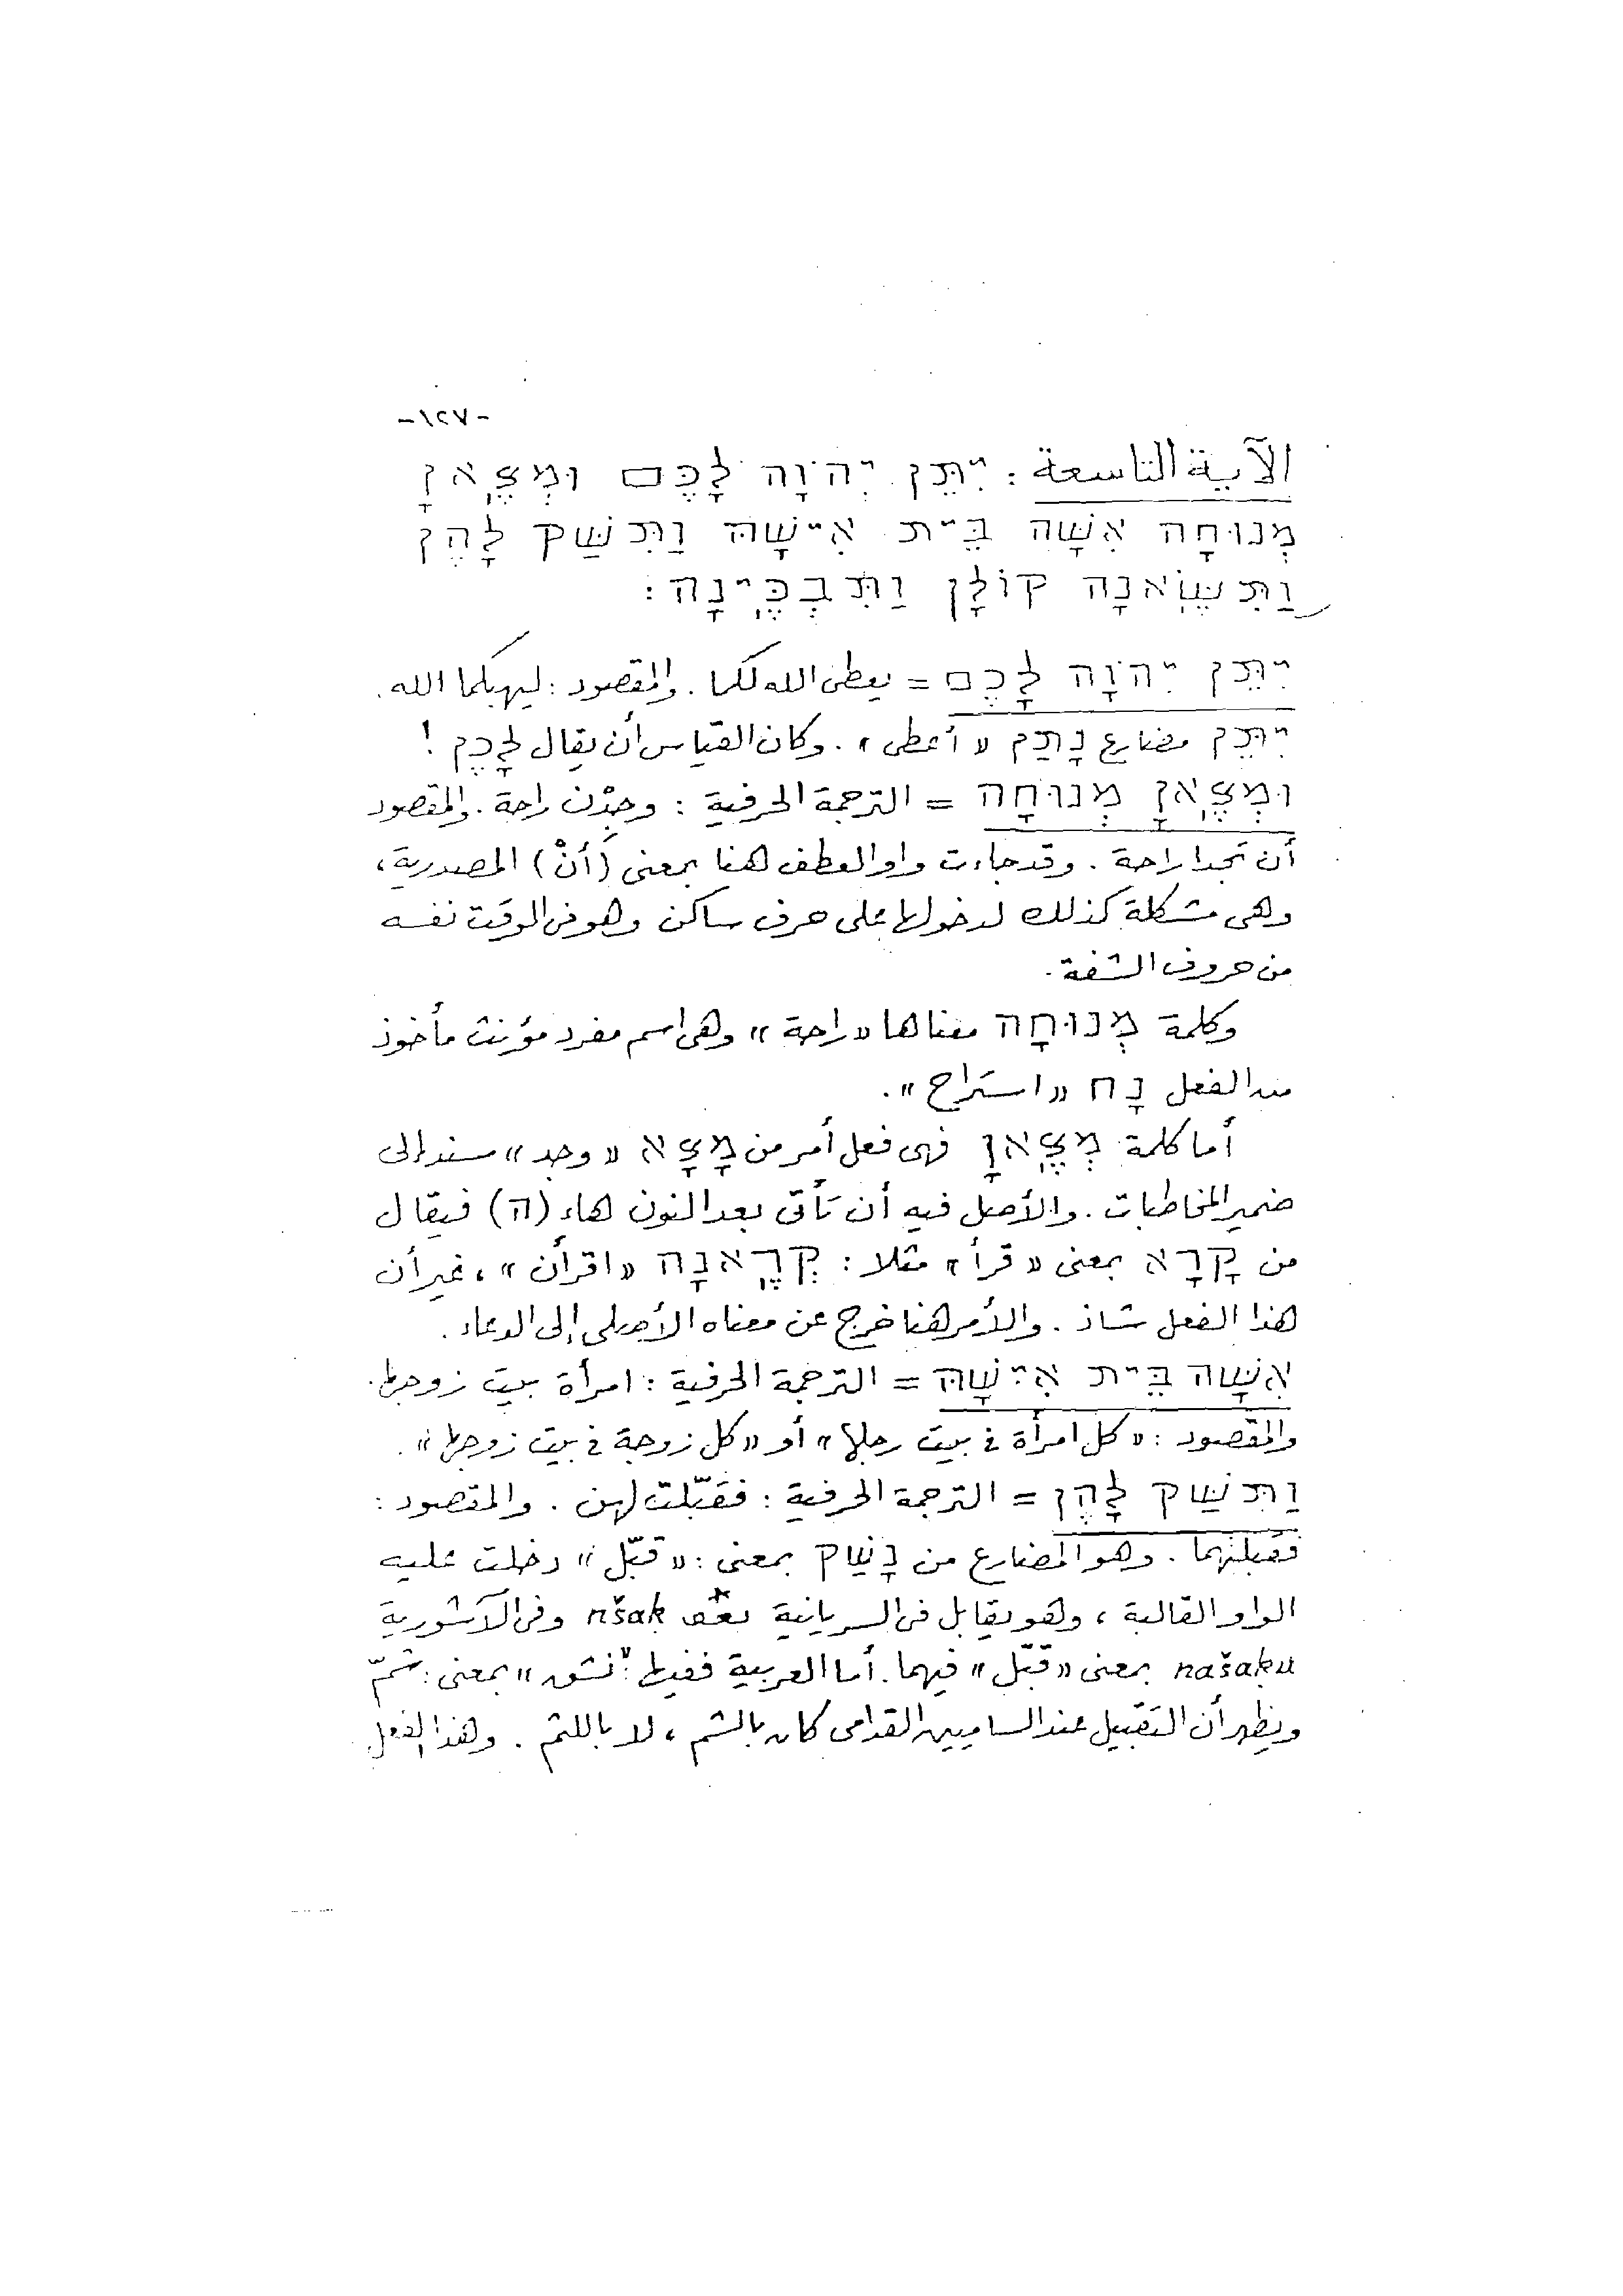 -١٢٧-
الآية التاسعة : יִתֵּן יְהוָֹה לָכֶם וּמְצֶאןָ
מְנוּחָה אִשָּׁה בֵּית אִישָׁהּ וַתִּשַּׁק לָהֶן
וַתִּשֶּׂאנָה קוֹלָן וַתִּבְכֶּינָה :
יִתֵּן יְהוָֹה לָכֶם = يعطى الله لكما . والمقصود : ليهبكما الله .
יִתֵּן مضارع נָתַן « أعطى » . وكان القياس أن يقال לָכֶן !
וּמְצֶאןָ מְנוּחָה = الترجمة الحرفية : وجِدْن راحة . والمقصود
أن تجدا راحة . وقد جاءت واو العطف هنا بمعنى (أنْ) المصدرية ،
وهى مشكلة كذلك لدخولها على حرف ساكن وهو فى الوقت نفسه
من حروف الشفة .
وكلمة מְנוּחָה معناها « راحة » وهى اسم مفرد مؤنث مأخوذ
من الفعل נָח « استراح » .
أما كلمة מְצֶאןָ فهى فعل أمر من מָצָא « وجد » مسند إلى
ضمير المخاطبات . والأصل فيه أن تأتى بعد النون هاء (ה) فيقال
من קָרָא بمعنى « قرأ » مثلا : קְרֶאנָה « اقرأن » ، غير أن
هذا الفعل شاذ . والأمر هنا خرج عن معناه الأصلى إلى الدعاء .
אִשָּׁה בֵּית אִישָׁהּ = الترجمة الحرفية : امرأة بيت زوجها .
والمقصود : « كل امرأة فى بيت رجلها » أو « كل زوجة فى بيت زوجها » .
וַתִּשַּׁק לָהֶן = الترجمة الحرفية : فقبّلت لهن . والمقصود :
فقبلتهما . وهو المضارع من נָשַׁק بمعنى : « قبّل » دخلت عليه
الواو القالبة ، وهو يقابل فى السريانية ܢܫܩ nšaḳ وفى الآشورية
našaḳu بمعنى « قبّل » فيهما . أما العربية ففيها : « نشق » بمعنى : شمّ
ويظهر أن التقبيل عند الساميين القدامى كان بالشم ، لا باللثم . وهذا الفعل